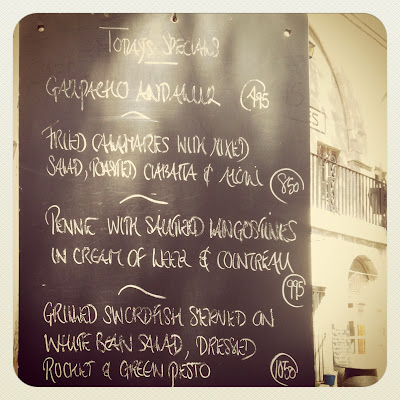 Today's Specials
GAZPACHO ANDALUZ 4.95
FRIED CALAMARES WITH MIXED
SALAD, ROASTED CIABATTA & ALIOLI 8.50
PENNE WITH SAUTEED LANGOSTINES
IN CREAM OF & COINTREAU
9.95
GRILLED SWORDFISH SERVED ON
WHITE BEAN SALAD, DRESSED
ROCKET & GREEN PESTO 10.50